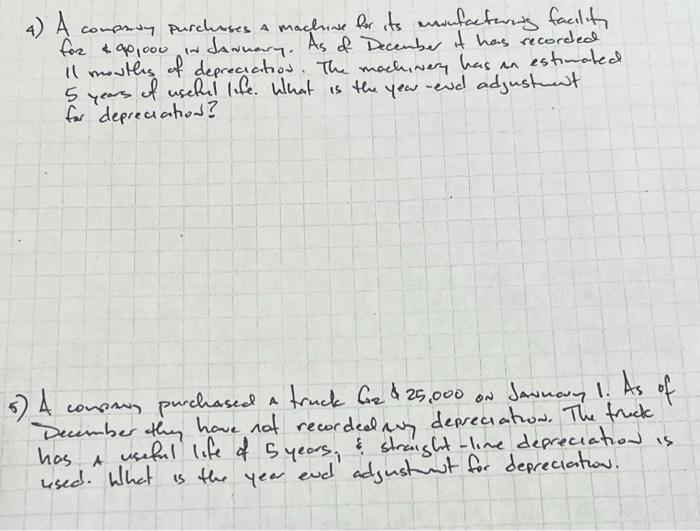 4) A company purchases a machine for its manufacturing facility
for $90,000 in January. As of December it has recorded
11 months of depreciation. The machinery has an estimated
5 years of useful life. What is the year-end adjustment
for depreciation?
5) A company purchased a truck for $25,000 on January 1. As of
December they have not recorded any depreciation. The truck
has a useful life of 5 years, & straight-line depreciation is
used. What is the year end adjustment for depreciation.